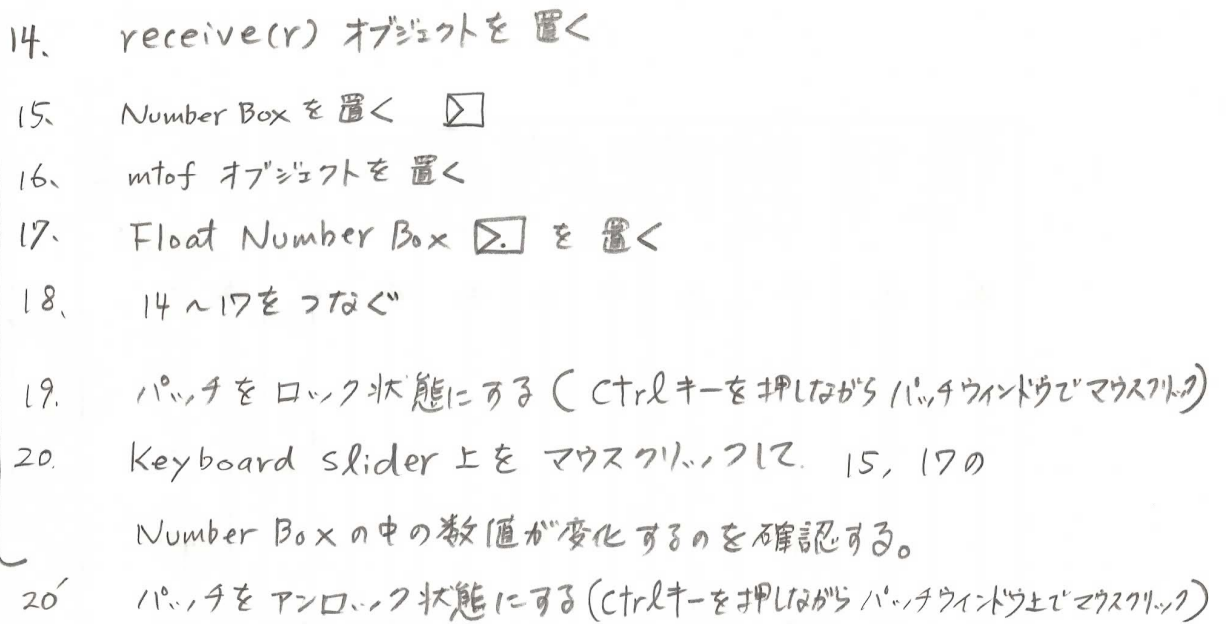 14、 receive(r) オブジェクトを 置く
15、 Number Box を 置く
16、 mtof オブジェクトを 置く
17、 Float Number Box を 置く
18、 14~17を つなぐ
19. パッチを ロック状態にする ( Ctrlキーを押しながら パッチウィンドウでマウスクリック)
20. Keyboard slider 上を マウスクリックして. 15, 17の
Number Box の中の数値が変化するのを確認する。
20' パッチを アンロック状態にする (Ctrlキーを押しながら パッチウィンドウ上でマウスクリック)